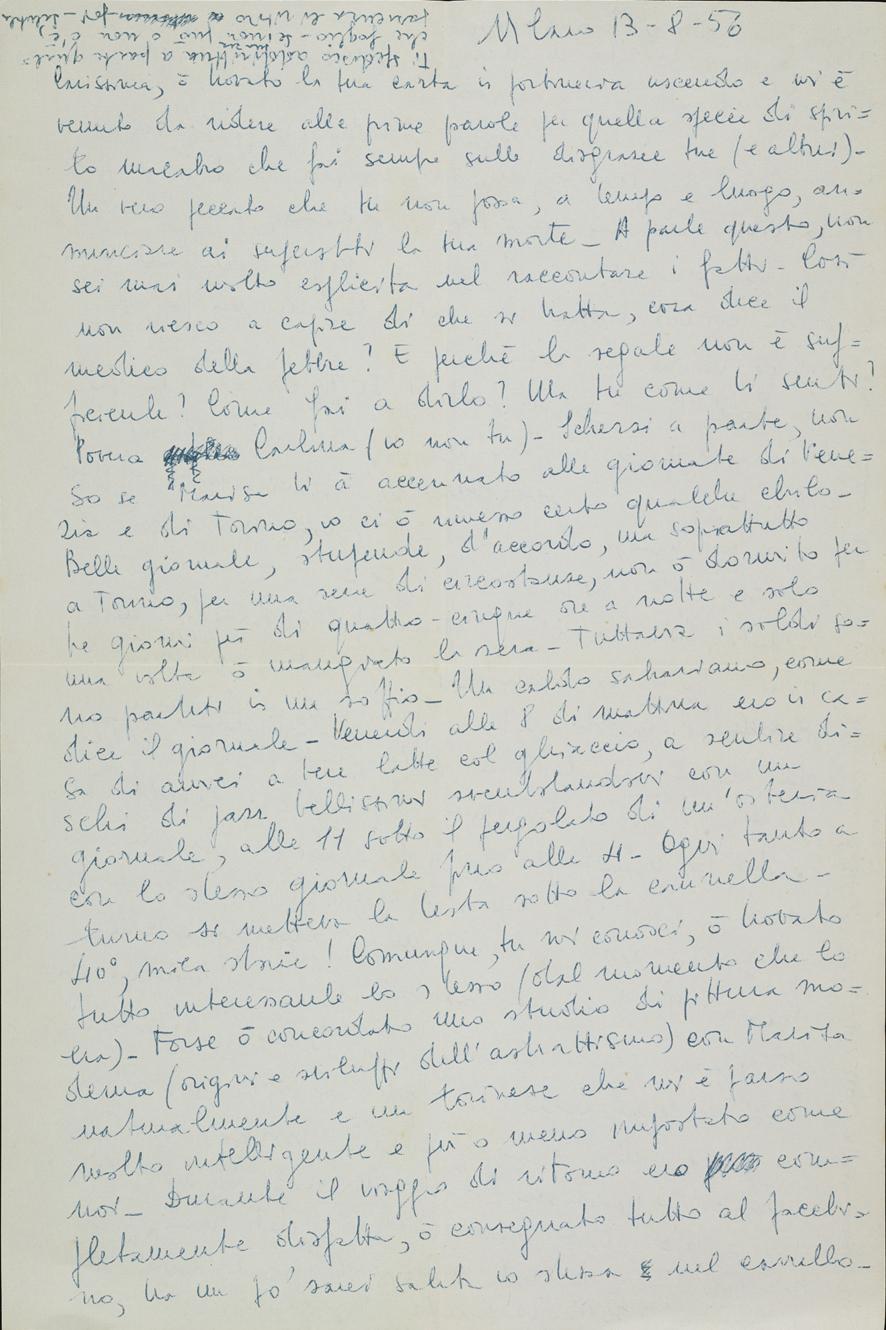 Milano 13-8-56
Carissima, ò trovato la tua carta in portineria uscendo e mi è
venuto da ridere alle prime parole per quella specie di spiri=
to macabro che fai sempre sulle disgrazie tue (e altrui)-
Un vero peccato che tu non possa, a tempo e luogo, an-
nunciare ai superstiti la tua morte- A parte questo, non
sei mai molto esplicita nel raccontare i fatti- Così
non riesco a capire di che si tratta, cosa dice il
medico della febbre? E perché la segale non è suf=
ficiente? Come fai a dirlo? Ma tu come ti senti?
Povera Carlina (io non tu)- Scherzi a parte, non
so se Marisa ti à accennato alle giornate di Vene=
zia e di Torino, io ci ò rimesso certo qualche chilo-
Belle giornate, stupende, d'accordo, ma soprattutto
a Torino, per una serie di circostanze, non ò dormito per
tre giorni più di quattro-cinque ore a notte e solo
una volta ò mangiato la sera- Tuttavia i soldi so=
no partiti in un soffio- Un caldo sahariano, come
dice il giornale- Venerdì alle 8 di mattina ero in ca=
sa di amici a bere latte col ghiaccio, a sentire di=
schi di jazz bellissimi sventolandomi con un
giornale, alle 11 sotto il pergolato di un'osteria
con lo stesso giornale fino alle 4- Ogni tanto a
turno si metteva la testa sotto la cannella-
40°, mica storie! Comunque, tu mi conosci, ò trovato
tutto interessante lo stesso (dal momento che lo
era)- Forse ò concordato uno studio di pittura mo=
derna (origini e sviluppi dell'astrattismo) con Marisa
naturalmente e un torinese che mi è parso
molto intelligente e più o meno impostato come
noi- Durante il viaggio di ritorno ero com=
pletamente disfatta, ò consegnato tutto al facchi=
no, tra un po' sarei salita io stessa nel carrello-
Ti spedisco a parte
che foglio- se non può o non c'è,